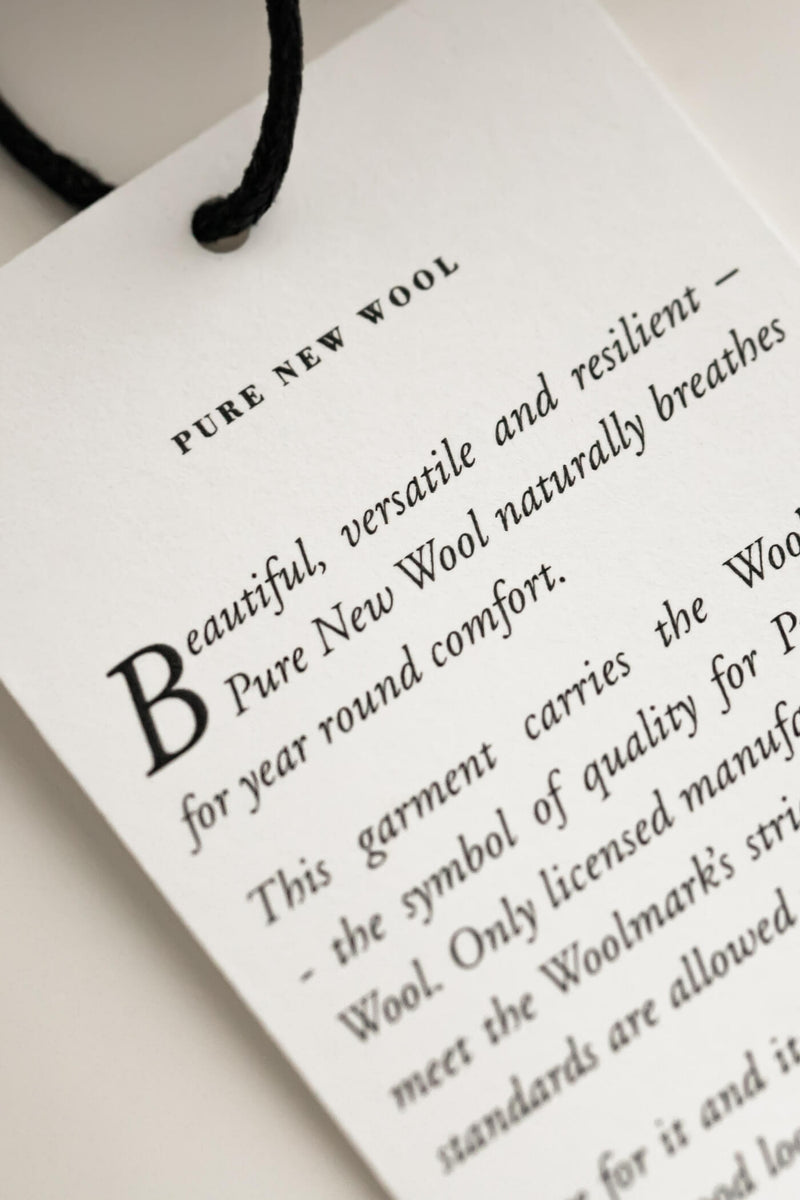 PURE NEW WOOL
Beautiful, versatile and resilient –
Pure New Wool naturally breathes
for year round comfort.
This garment carries the
- the symbol of quality for
Wool. Only licensed
meet the Woolmark's
standards are allowed
for it and